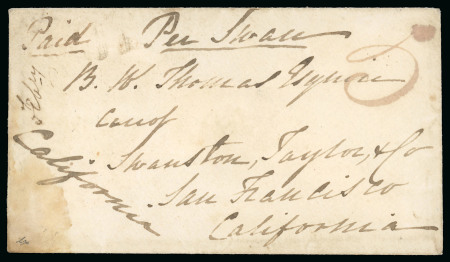 Paid Per Swan
B. H. Thomas Esquire
care of
Swanston, Taylor, & Co
San Francisco
California
California